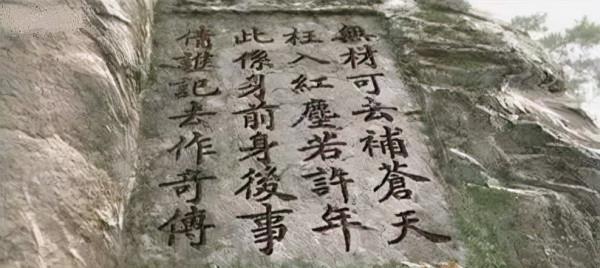 無材可去補蒼天
枉入紅塵若許年
此係身前身後事
倩誰記去作奇傳